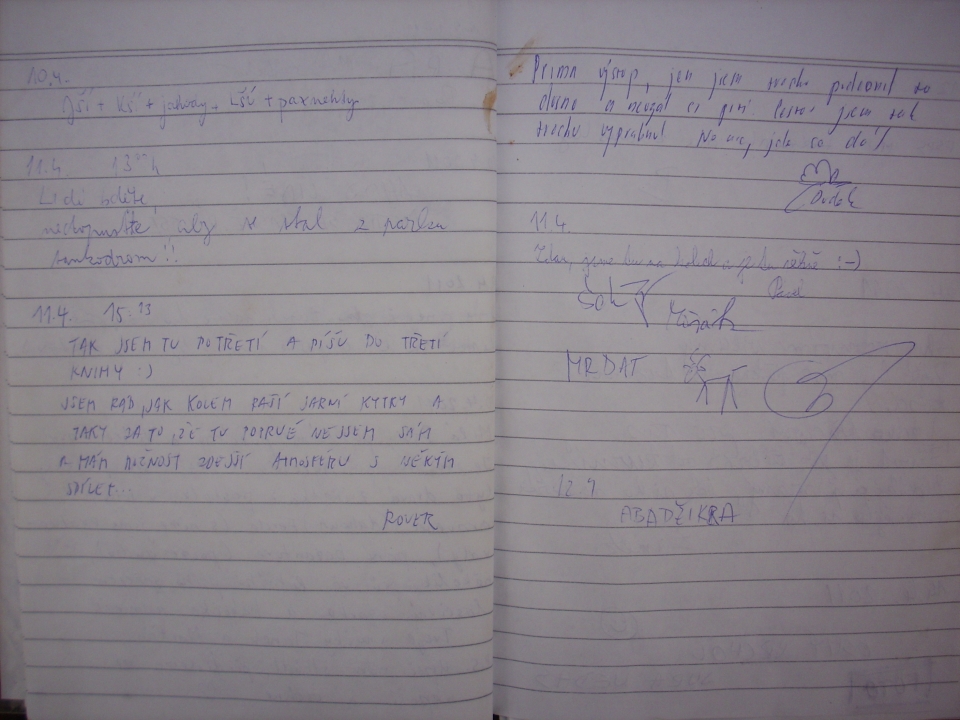 10.4.
JŠÍ + KŠÍ + jahody + LŠÍ + paznehty
11.4. 13 h
Lidi bděte,
nedopusťte aby se stal z parku
tankodrom!!
11.4. 15:23
TAK JSEM TU POTŘETÍ A PÍŠU DO TŘETÍ
KNIHY :)
JSEM RÁD, JAK KOLEM RAŠÍ JARNÍ KYTKY A
TAKY ZA TO, ŽE TU POPRVÉ NEJSEM SÁM
A MÁM MOŽNOST ZDEJŠÍ ATMOSFÉRU S NĚKÝM
SDÍLET...
ROVER
Prima výstup, jen jsem trochu podcenil to
a nevzal si pití. Cestou jsem tak
trochu vyprahnul. No nic, jak se dá!
11.4.
Zdar, jsme tu na kolech a je tu :-)
MRDAT
12.4
ABADŽIKRA